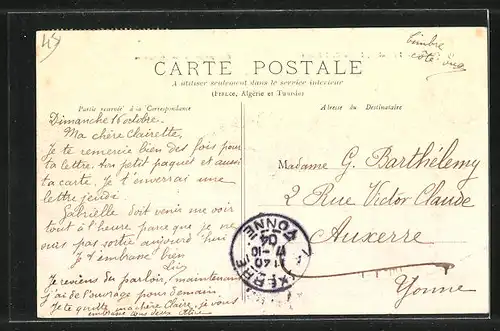 45
timbre
côté vue
CARTE POSTALE
A utiliser seulement dans le service intérieur
(France, Algérie et Tunisie)
Partie réservée à la Correspondance
Adresse du Destinataire
Dimanche 16 octobre.
Ma chère Clairette,
Je te remercie bien des fois pour
ta lettre. ton petit paquet et aussi
ta carte. Je t'enverrai une
lettre jeudi.
Gabrielle doit venir me voir
tout à l'heure parce que je ne
suis pas sortie aujourd'hui
Je t'embrasse bien
Je reviens du parloir, maintenant
j'ai de l'ouvrage pour demain.
Je te quitte ma chère Claire, je vous
embrasse tous deux
Madame G. Barthélemy
2 Rue Victor Claude
Auxerre
Yonne
AUXERRE
YONNE
11 40
17 -10
04